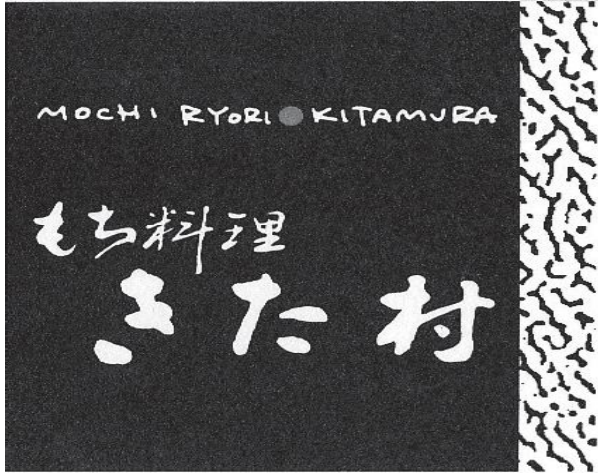 MOCHI RYORI●KITAMURA
もち料理
きた村